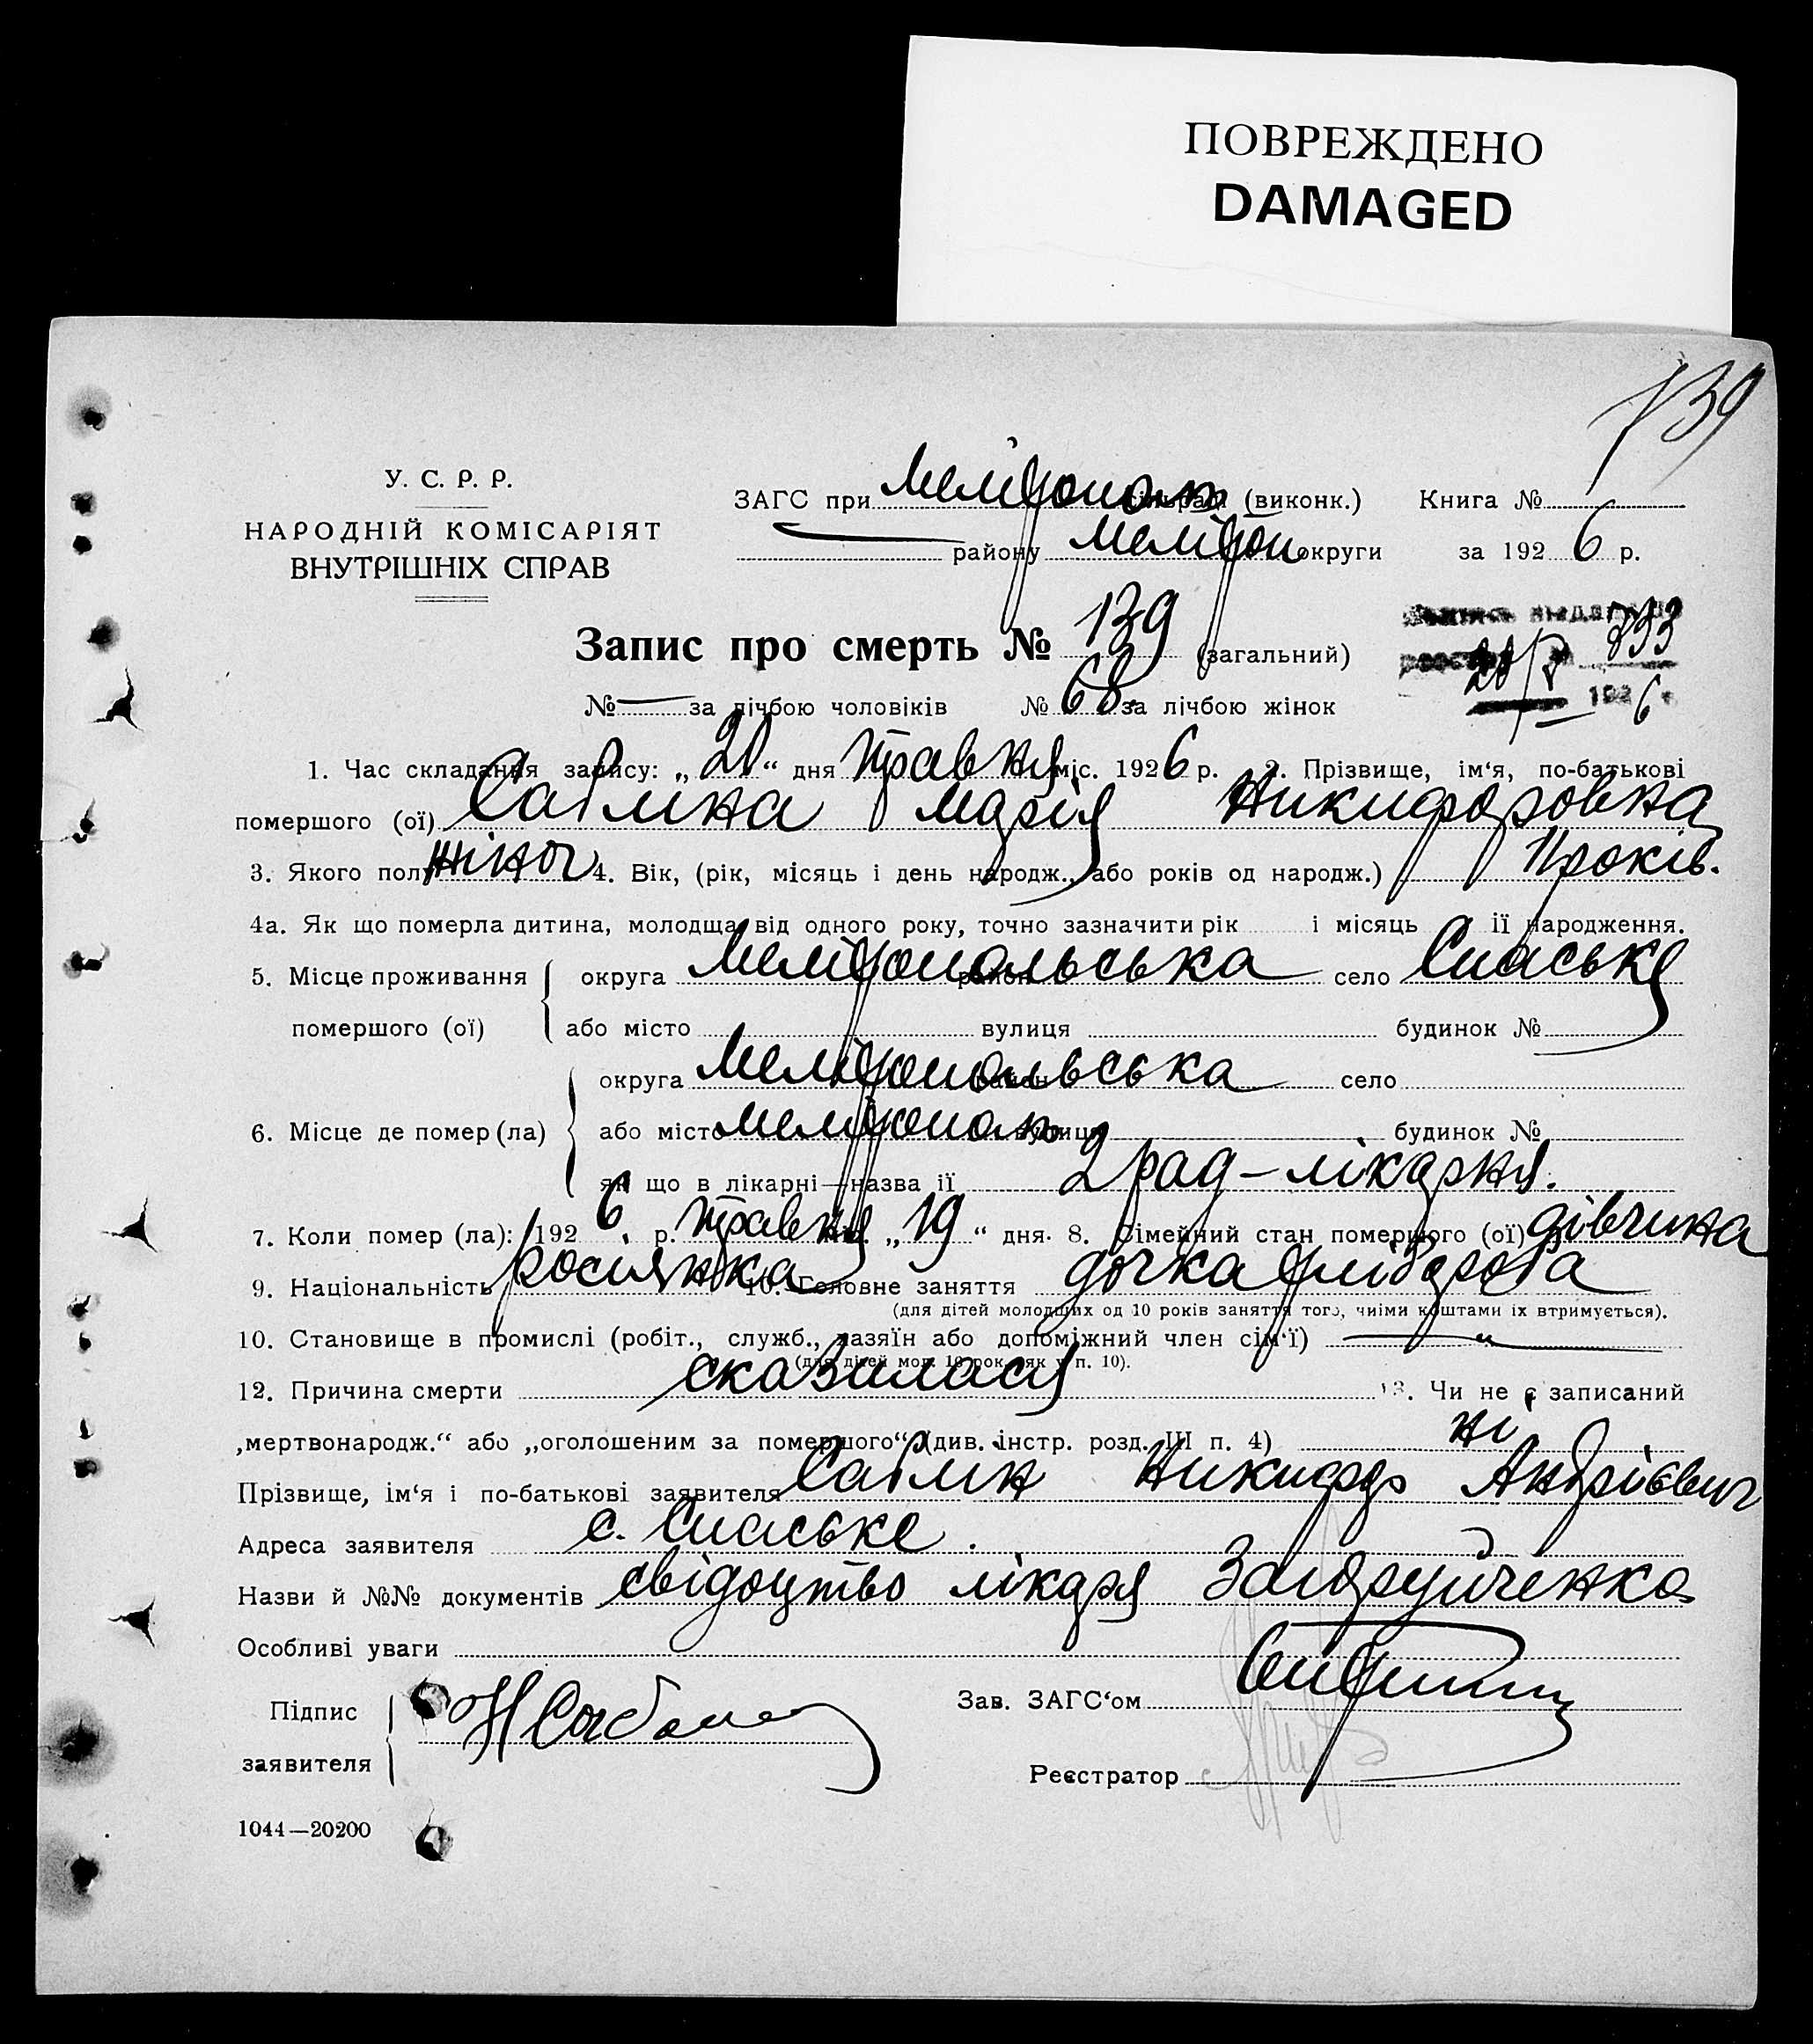 ПОВРЕЖДЕНО
DAMAGED
139
У. С. Р. Р.
НАРОДНІЙ КОМІСАРІЯТ
ВНУТРІШНІХ СПРАВ
ЗАГС при Мелітополь сільраді (виконк.) Книга №
району Мелітоп округи за 1926 р.
Запис про смерть № 139 (загальний)
№ — за лічбою чоловіків № 68 за лічбою жінок
793
20/V
1926 г.
1. Час складання запису: „20“ дня травня міс. 1926 р. 2. Прізвище, ім'я, по-батькові
помершого (ої) Сабліна Марія Никифоровна
3. Якого полу жіноч 4. Вік, (рік, місяць і день народж., або років од народж.) 11 років.
4а. Як що померла дитина, молодща від одного року, точно зазначити рік і місяць її народження.
5. Місце проживання округа Мелітопольська район село Спаське
помершого (ої) або місто вулиця будинок №
округа Мелітопольська район село
6. Місце де помер (ла) або місто Мелітополь вулиця будинок №
як що в лікарні—назва її 2 рад-лікарня.
7. Коли помер (ла): 1926 р. травня міс. „19“ дня. 8. Сімейний стан помершого (ої) дівчина
9. Національність росіянка 10. Головне заняття дочка хлібороба
(для дітей молодших од 10 років заняття того, чиїми коштами їх втримується).
10. Становище в промислі (робіт., служб., хазяїн або допоміжний член сім'ї) — „ —
(для дітей мол. 10 рок. як у п. 10).
12. Причина смерти сказилася 13. Чи не є записаний
„мертвонародж.“ або „оголошеним за помершого“ (див. інстр. розд. III п. 4) ні
Прізвище, ім'я і по-батькові заявителя Саблін Никифор Андрієвич
Адреса заявителя с. Спаське.
Назви й №№ документів свідоцтво лікаря
Особливі уваги
Підпис
заявителя
Зав. ЗАГС'ом
Реєстратор
1044—20200